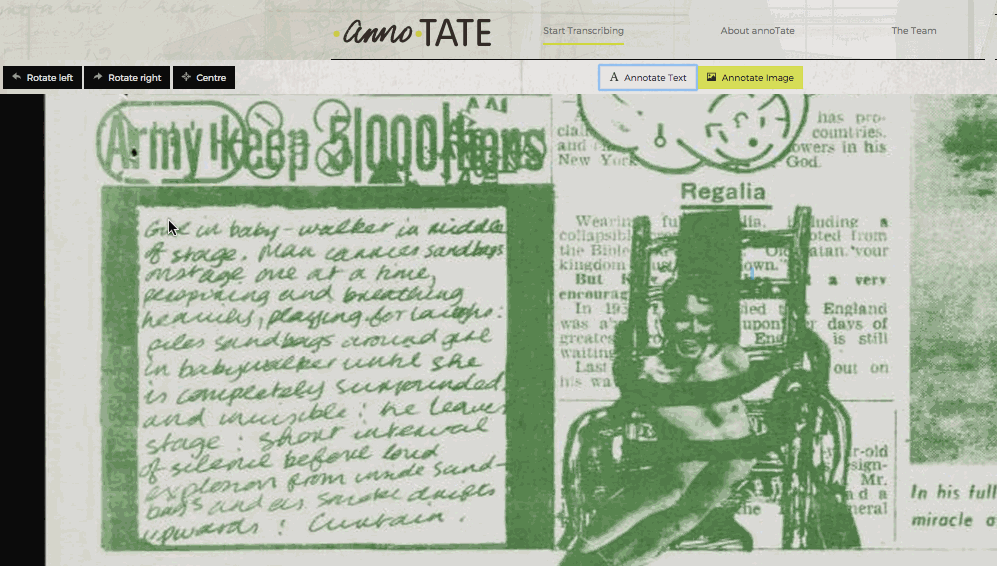 anno·TATE
Start Transcribing
About annoTate
The Team
Rotate left
Rotate right
Centre
A Annotate Text
Annotate Image
Army Keep 5,000
Girl in baby-walker in middle
of stage. Man carries sandbags
onstage one at a time,
perspiring and breathing
heavily, playing for laughs:
piles sandbags around girl
in babywalker until she
is completely surrounded
and invisible: he leaves
stage: short interval
of silence before loud
explosion from inside sand-
bags and as smoke drifts
upwards: Curtain.
has pro-
clai countries.
and owers in his
New York God.
Regalia
Wearin ful lia, luding a
collapsibl oted from
the Bible Ol atan "your
kingdom own."
But a very
encourag
In 193 England
was a upon r days of
greates Eng is still
waiting
Last out on
his wa
r-old
sign-
Mr.
d a
the neral
In his full
miracle a